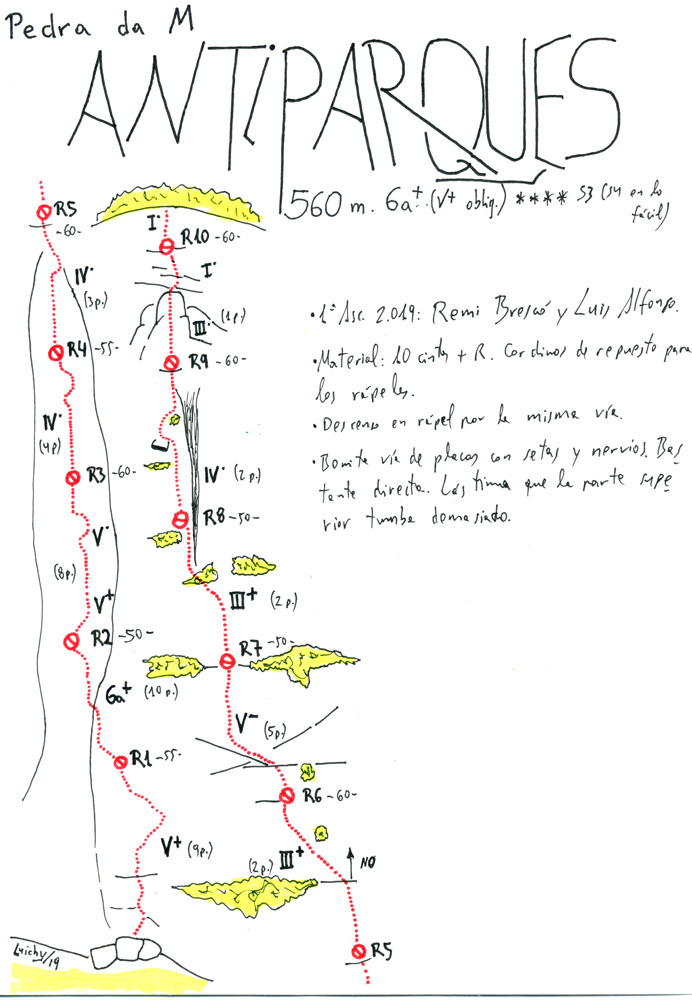 Pedra da M
ANTIPARQUES
560 m. 6a+ (V+ oblig.) **** S3 (S4 en lo
fácil)
R5
-60-
IV·
(3p.)
R4 -55-
IV·
(4p)
R3 -60-
V·
(8p.)
V+
R2 -50-
6a+ (10p.)
R1 -55-
V+ (9p.)
Luichy/19
I·
R10 -60-
I·
(1p.)
III·
R9 -60-
IV· (2p.)
R8 -50-
III+ (2p.)
R7 -50-
V- (5p.)
R6 -60-
(2p.) III+
NO
R5
·1ª Asc. 2.019: Remi Brescó y Luis Alfonso.
·Material: 10 cintas + R. Cordinos de repuesto para
los rápeles.
·Descenso en rápel por la misma vía.
·Bonita vía de placas con setas y nervios. Bas
tante directa. Lástima que la parte supe
rior tumba demasiado.